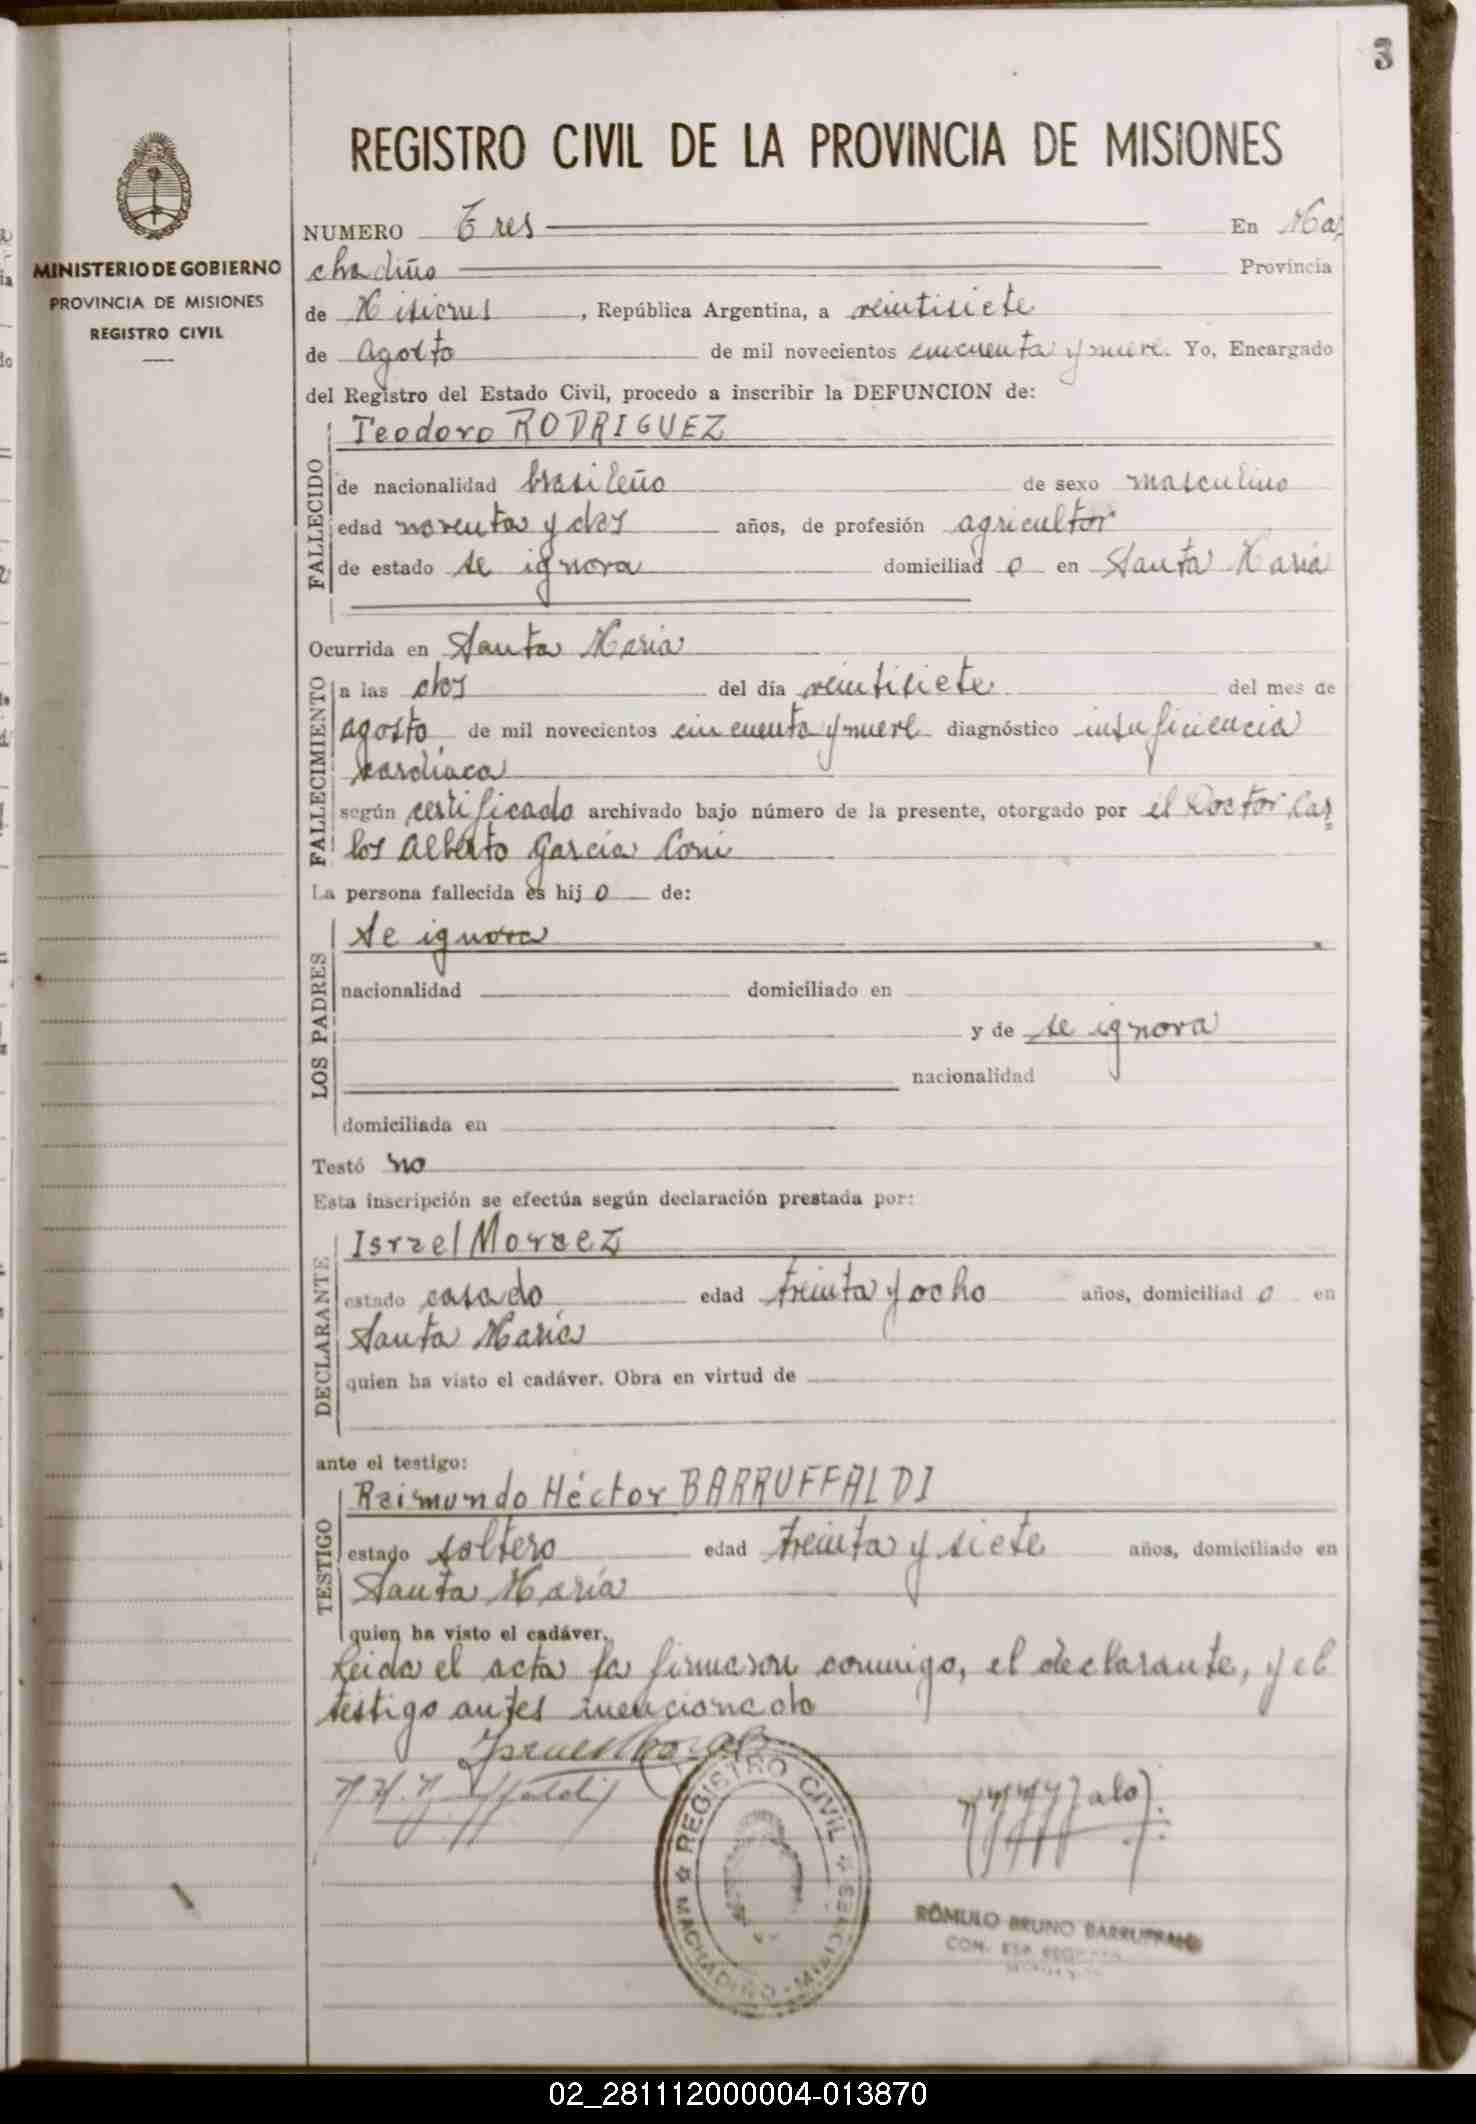 3
REGISTRO CIVIL DE LA PROVINCIA DE MISIONES
MINISTERIO DE GOBIERNO
PROVINCIA DE MISIONES
REGISTRO CIVIL
NUMERO Tres En Ma-
chadiño Provincia
de Misiones, República Argentina, a veintisiete
de agosto de mil novecientos cincuenta y nueve. Yo, Encargado
del Registro del Estado Civil, procedo a inscribir la DEFUNCION de:
FALLECIDO
Teodoro RODRIGUEZ
de nacionalidad brasileño de sexo masculino
edad noventa y dos años, de profesión agricultor
de estado se ignora domiciliad o en Santa María
Ocurrida en Santa María
FALLECIMIENTO
a las dos del día veintisiete del mes de
agosto de mil novecientos cincuenta y nueve diagnóstico insuficiencia
cardíaca
según certificado archivado bajo número de la presente, otorgado por el Doctor Car
los Alberto García Coni
La persona fallecida es hij o de:
LOS PADRES
se ignora
nacionalidad domiciliado en
y de se ignora
nacionalidad
domiciliada en
Testó no
Esta inscripción se efectúa según declaración prestada por:
DECLARANTE
Israel Moraez
estado casado edad treinta y ocho años, domiciliad o en
Santa María
quien ha visto el cadáver. Obra en virtud de
ante el testigo:
TESTIGO
Raimundo Héctor BARRUFFALDI
estado soltero edad treinta y siete años, domiciliado en
Santa María
quien ha visto el cadáver.
Leida el acta la firmaron conmigo, el declarante, y el
testigo antes mencionado
REGISTRO CIVIL
MACHADIÑO - MISIONES
RÓMULO BRUNO BARRUFFALDI
02_281112000004-013870